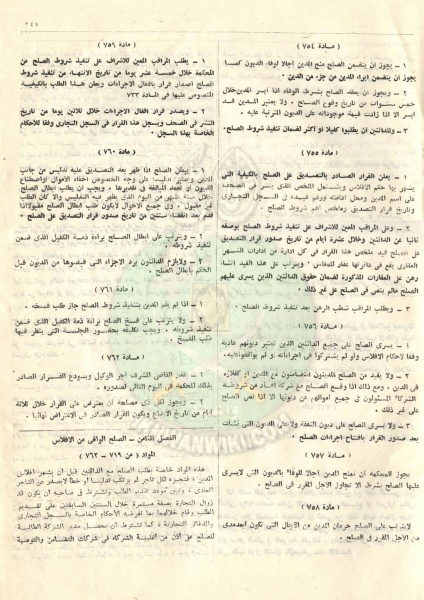 ٢٤٧
( مادة ٧٥٤ )
١ - يجوز ان يتضمن الصلح منح المدين اجالا لوفاء الديون كما
يجوز ان يتضمن ابراء المدين من جزء من الدين .
٢ - ويجوز ان يعقد الصلح بشرط الوفاء اذا ايسر المدين خلال
خمس سنوات من تاريخ وقوع الصلح . ولا يعتبر المدين قد
ايسر الا اذا زادت قيمة موجوداته على الديون المترتبة عليه .
٣ - وللدائنين ان يطلبوا كفيلا او اكثر لضمان تنفيذ شروط الصلح .
( مادة ٧٥٥ )
١ - يعلن القرار الصادر بالتصديق على الصلح بالكيفية التي
يشهر بها حكم الافلاس ويشتمل الملخص الذي ينشر في الصحف
على اسم المدين ومحل اقامته ورقم قيده في السجل التجاري
وتاريخ قرار التصديق وملخص اهم شروط الصلح .
٢ - وعلى المراقب المعين للاشراف على تنفيذ شروط الصلح بوصفه
نائبا عن الدائنين وخلال عشرة ايام من تاريخ صدور قرار التصديق
على الصلح قيد ملخص هذا القرار في كل ادارة من ادارات الشهر
العقاري يقع في دائرتها عقار للمفلس . ويترتب على هذا القيد انشاء
رهن على العقارات المذكورة لضمان حقوق الدائنين الذين يسري عليهم
الصلح مالم ينص في الصلح على غير ذلك .
٣ - ويطلب المراقب شطب الرهن بعد تنفيذ شروط الصلح .
( مادة ٧٥٦ )
١ - يسري الصلح على جميع الدائنين الذين تعتبر ديونهم عادية
وفقا لاحكام الافلاس ولو لم يشتركوا في اجراءاته او لم يوافقوا عليه .
٢ - ولا يفيد من الصلح المدينون المتضامنون مع المدين او كفلاؤه
في الدين . ومع ذلك اذا وقع الصلح مع شركة افاد من شروطه
الشركاء المسئولون في جميع اموالهم عن ديونها الا اذا نص الصلح
على غير ذلك .
٣ - ولا يسري الصلح على ديون النفقة ولا على الديون التي نشأت
بعد صدور القرار بافتتاح اجراءات الصلح .
( مادة ٧٥٧ )
يجوز للمحكمة ان تمنح المدين اجالا للوفاء بالديون التي لا يسري
عليها الصلح بشرط الا تجاوز الاجل المقرر في الصلح .
( مادة ٧٥٨ )
لا يترتب على الصلح حرمان المدين من الاجال التي تكون ابعد مدى
من الاجل المقرر في الصلح .
( مادة ٧٥٩ )
١ - يطلب المراقب المعين للاشراف على تنفيذ شروط الصلح من
المحكمة خلال خمسة عشر يوما من تاريخ الانتهاء من تنفيذ شروط
الصلح اصدار قرار باقفال الاجراءات ويعلن هذا الطلب بالكيفية
المنصوص عليها في المادة ٧٣٣
٢ - ويصدر قرار اقفال الاجراءات خلال ثلاثين يوما من تاريخ
النشر في الصحف ويسجل هذا القرار في السجل التجاري وفقا للاحكام
الخاصة بهذا السجل .
( مادة ٧٦٠ )
١ - يبطل الصلح اذا ظهر بعد التصديق عليه تدليس من جانب
المدين ويعتبر تدليسا على وجه الخصوص اخفاء الاموال او اصطناع
الديون او تعمد المبالغة في تقديرها . ويجب ان يطلب ابطال الصلح
خلال ستة اشهر من اليوم الذي ظهر فيه التدليس والا كان الطلب
غير مقبول . وفي جميع الاحوال لا يكون طلب ابطال الصلح مقبولا اذا
قدم بعد انقضاء سنتين من تاريخ صدور قرار التصديق على الصلح .
٢ - ويترتب على ابطال الصلح براءة ذمة الكفيل الذي ضمن
تنفيذ شروطه .
٣ - ولا يلتزم الدائنون برد الاجزاء التي قبضوها من الديون قبل
الحكم بابطال الصلح .
( مادة ٧٦١ )
١ - اذا لم يقم المدين بتنفيذ شروط الصلح جاز طلب فسخه .
٢ - ولا يترتب على فسخ الصلح براءة ذمة الكفيل الذي ضمن
تنفيذ شروطه . ويجب تكليفه بحضور الجلسة التي ينظر فيها
طلب الفسخ .
( مادة ٧٦٢ )
١ - يقدر القاضي المشرف اجر الوكيل ويودع القرار الصادر
بذلك المحكمة في اليوم التالي لصدوره .
٢ - ويجوز لكل ذي مصلحة ان يعترض على القرار خلال ثلاثة
ايام من تاريخ الايداع ويكون القرار الصادر في الاعتراض نهائيا .
الفصل الثامن - الصلح الواقي من الافلاس
المواد ( من ٧١٩ - ٧٦٢ )
هذه المواد خاصة بطلب الصلح مع الدائنين قبل ان يشهر افلاس
المدين ، فتجيزه لكل تاجر لم يرتكب تدليسا او خطأ لا يصدر عن التاجر
العادي ،
زوال التجارة بصفة مستمرة خلال السنتين السابقتين على تقديم
الطلب وقام خلالهما بما تفرضه الاحكام الخاصة بالسجل التجاري
والدفاتر التجارية ،
للصلح على الاذن من اغلبية الشركاء في شركات التضامن والتوصية